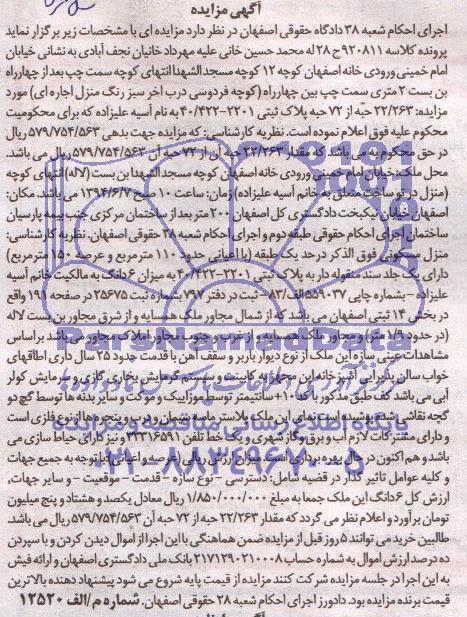 آگهی مزایده
اجرای احکام شعبه ۳۸ دادگاه حقوقی اصفهان در نظر دارد مزایده ای با مشخصات زیر برگزار نماید
پرونده کلاسه ۹۲۰۸۱۱ ح ۲۸ له محمد حسین خانی علیه مهرداد خانیان نجف آبادی به نشانی خیابان
امام خمینی ورودی خانه اصفهان کوچه ۱۲ کوچه مسجد الشهدا انتهای کوچه سمت چپ بعد از چهارراه
بن بست ۲ متری سمت چپ بین چهارراه (کوچه فردوسی درب آخر سبز رنگ منزل اجاره ای) مورد
مزایده: ۲۲/۲۶۳ حبه از ۷۲ حبه پلاک ثبتی ۲۲۰۱-۴۰/۴۲۲ به نام آسیه علیزاده که برای محکومیت
محکوم علیه فوق اعلام نموده است. نظریه کارشناسی: که مزایده جهت بدهی ۵۷۹/۷۵۴/۵۶۳ ریال
در حق محکوم له می باشد که مقدار ۲۲/۲۶۳ حبه از ۷۲ حبه آن ۵۷۹/۷۵۴/۵۶۳ ریال می باشد.
محل ملک: خیابان امام خمینی ورودی خانه اصفهان کوچه مسجد الشهدا بن بست (لاله) انتهای کوچه
(منزل در تو ساخت متعلق به خانم آسیه علیزاده) زمان: ساعت ۱۰ صبح ۱۳۹۴/۶/۷ می باشد. مکان:
اصفهان خیابان نیکبخت دادگستری کل اصفهان ۲۰۰ متر بعد از ساختمان مرکزی جنب بیمه پارسیان
ساختمان اجرای احکام حقوقی طبقه دوم و اجرای احکام شعبه ۳۸ حقوقی اصفهان. نظریه کارشناسی:
منزل مسکونی فوق الذکر در حد یک طبقه (با اعیانی حدود ۱۱۰ مترمربع و عرصه ۱۵۰ مترمربع)
دارای یک جلد سند منقوله دار به پلاک ثبتی ۲۲۰۱-۴۰/۴۲۲ به میزان ۶ دانگ به مالکیت خانم آسیه
علیزاده – بشماره چاپی ۵۵۹۰۳۷ الف/۸۲ – ثبت در دفتر ۷۹۷ بشماره ثبت ۲۵۶۷۵ در صفحه ۱۹۱ واقع
در بخش ۱۴ ثبتی اصفهان می باشد که از شمال مجاور ملک همسایه و از شرق مجاور بن بست لاله
(در حدود ۱/۹ متر) و مجاور ملک همسایه و از غرب و جنوب مجاور املاک مجاور می باشد براساس
مشاهدات عینی سازه این ملک از نوع دیوار باربر و سقف آهن با قدمت حدود ۲۵ سال دارای اطاقهای
خواب سالن پذیرایی آشپزخانه این مجاور به کابینت و سیستم گرمایش بخاری گازی و سرمایش کولر
آبی می باشد کف طبق مذکور با کف ۱۰+ سانتیمتر توسط موزاییک و موکت و سایر بدنه ها توسط گچ دو
گچه نقاشی شده پوشیده است نمای این ملک پلاستر ماسه سیمان و درب و پنجره ها از نوع فلزی است
و دارای مشترکات لازم آب و برق و گاز شهری و یک خط تلفن ۳۳۳۱۶۵۹۱ و نیز دارای حیاط سازی می
باشد و هم اکنون در حال بهره برداری است
و کلیه عوامل تاثیر گذار در قضیه شامل: دسترسی – نوع سازه – قدمت – موقعیت – و سایر جهات
ارزش کل ۶ دانگ این ملک جمعا به مبلغ ۱/۸۵۰/۰۰۰/۰۰۰ ریال معادل یکصد و هشتاد و پنج میلیون
تومان برآورد و اعلام نظر می گردد که مقدار ۲۲/۲۶۳ حبه از ۷۲ حبه آن ۵۷۹/۷۵۴/۵۶۳ ریال می باشد.
طالبین خرید می توانند ۵ روز قبل از مزایده ضمن هماهنگی با این اجرا از اموال دیدن کردن و با سپردن
ده درصد ارزش اموال به شماره حساب ۲۱۷۱۲۹۰۲۱۰۰۰۸ بانک ملی دادگستری اصفهان و ارائه فیش
به این اجرا در جلسه مزایده شرکت کنند مزایده از قیمت پایه شروع می شود پیشنهاد دهنده بالاترین
قیمت برنده مزایده بود. دادورز اجرای احکام شعبه ۲۸ حقوقی اصفهان. شماره م/الف ۱۲۵۲۰
پایگاه اطلاع رسانی مناقصه و مزایده
۰۲۱-۸۸۳۴۹۶۷۰-۵